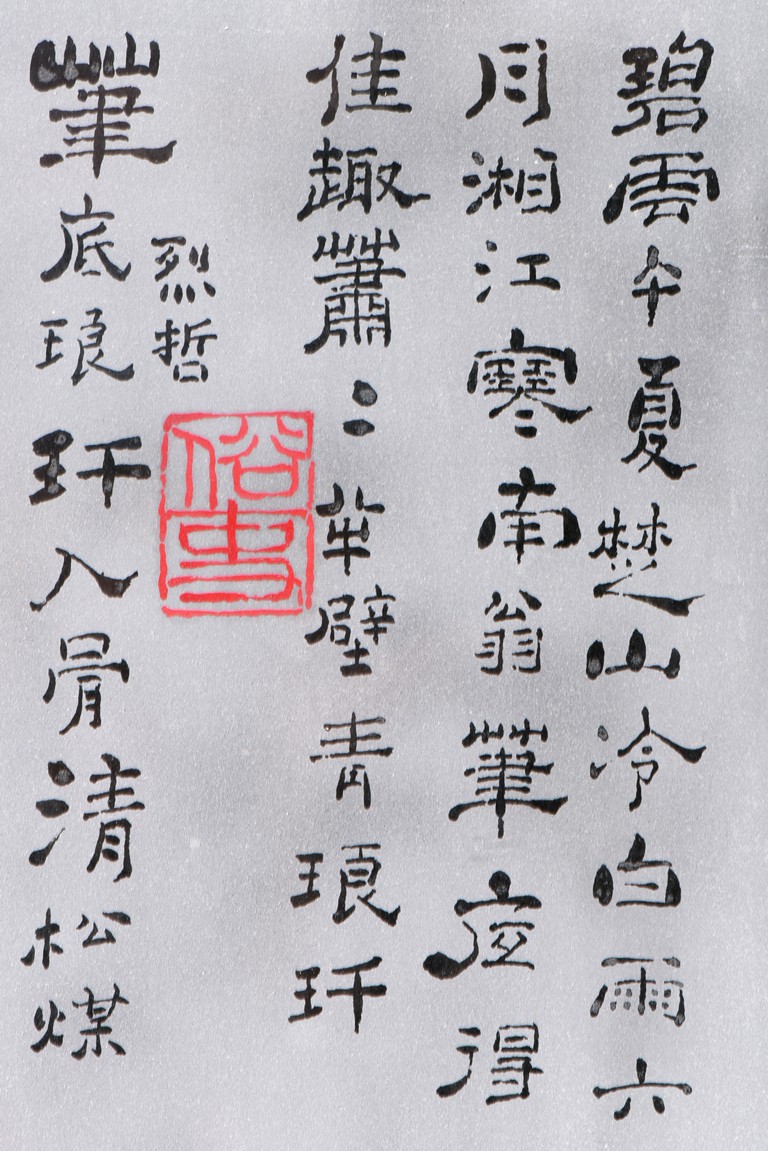 碧雲午夏楚山冷白雨六
月湘江寒南翁筆底得
佳趣蕭〻半壁青琅玕
筆底琅玕入骨清松煤
烈哲